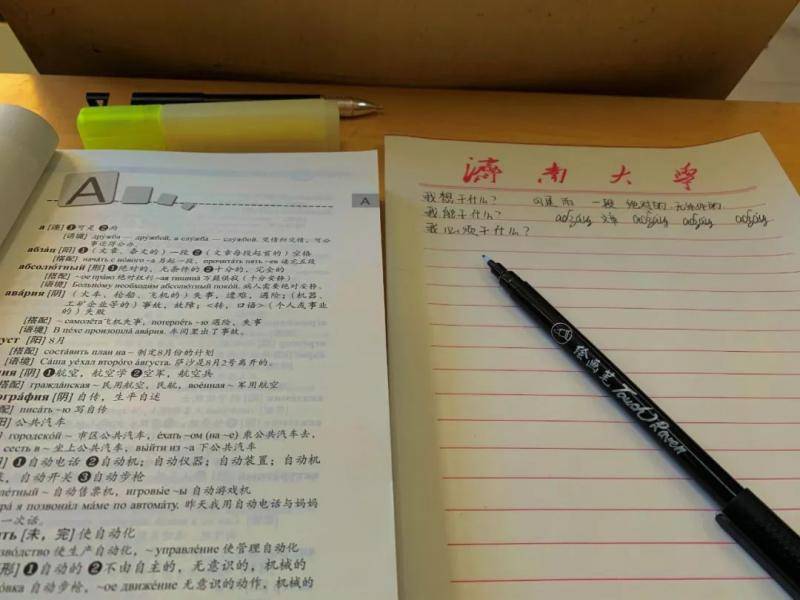 A
A
а [语] ❶可是 ❷而
[语境] дру́жба — дру́жбой, а слу́жба — слу́жбой. 交情归交情，可公事还得公办。
абза́ц [阳] ❶（文章、条文的）一段 ❷（文章每段起首的）空格
[搭配] нача́ть с но́вого ~а 另起一段，прочита́ть пять ~ев 读完五段
абсолю́тный [形] ❶绝对的，无条件的 ❷十分的，完全的
[搭配] ~ое пра́во 绝对权利，~ая тишина́ 万籁俱寂（十分安静）
[语境] Больно́му необходи́м абсолю́тный поко́й. 病人需要绝对安静。
ава́рия [阴] （火车、轮船、飞机的）失事，遭难，遇险；（机器、
工矿企业等的）事故，故障；<转，口语>（个人或事业
的）失败
[搭配] ~ самолёта飞机失事，потерпе́ть ~ю 遇险，失事
[语境] В це́хе произошла́ ава́рия. 车间里出了事故。
уст [阳] 8月
[搭配] соста́вить план на ~ 制定8月份的计划
[语境] Са́ша уе́хал второ́го а́вгуста. 萨沙是8月2号离开的。
ия [阴] ❶航空，航空学 ❷空军，航空兵
[搭配] гражда́нская ~ 民用航空，民航，вое́нная ~ 军用航空
огра́фия [阴] 自传，生平自述
配] писа́ть ~ю 写自传
阳] 公共汽车
] городско́й ~ 市区公共汽车，е́хать ~ом (на ~е) 乘公共汽车去，
сесть в ~ 坐上公共汽车，вы́йти из ~а 下公共汽车
] ❶自动电话 ❷自动机；自动仪器；自动装置；自动机
，自动开关 ❸自动步枪
ле́тный ~ 自动售票机，игровы́е ~ы 自动游戏机
ра́ я позвони́л ма́ме по автома́ту. 昨天我用自动电话与妈妈
一次话。
ть [未，完] 使自动化
зво́дство 使生产自动化，~ управле́ние 使管理自动化
形] ❶自动的 ❷不由自主的，无意识的，机械的
о́вка 自动步枪，~ое движе́ние 无意识的动作，机械的
濟南大学
我想干什么？ 可是 而 一段 绝对的 无条件的
我能干什么？ абзац абзац абзац абзац
我必须干什么？
绘画笔 Touch Raven